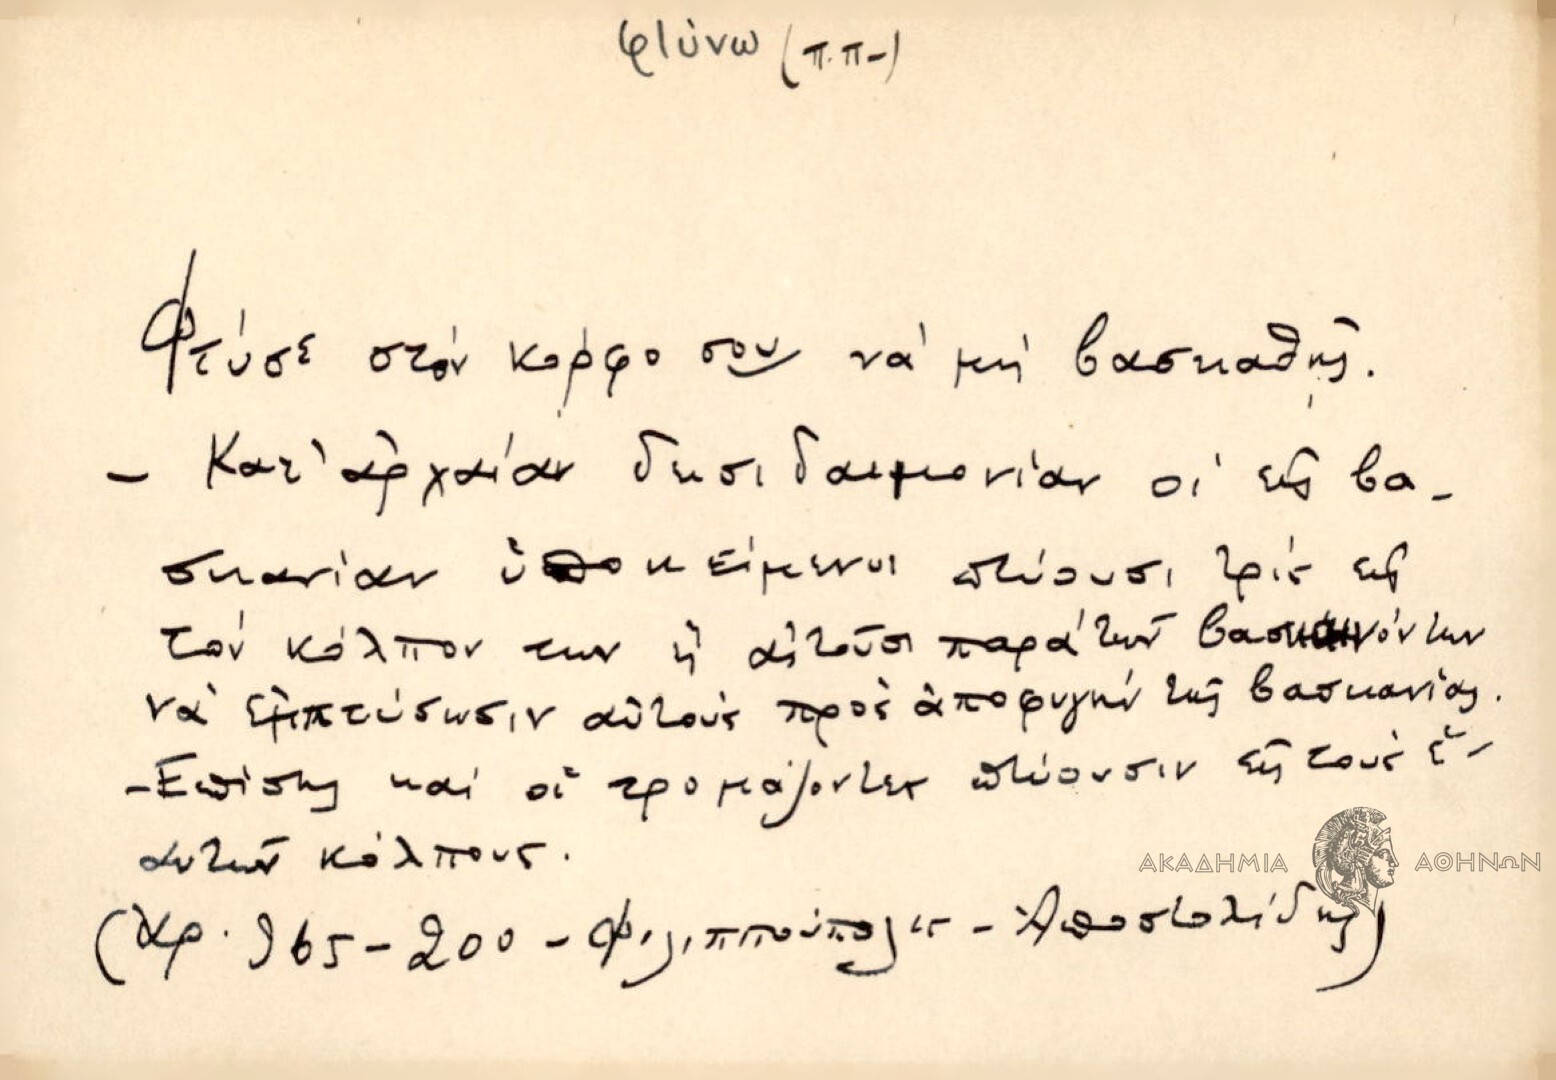 φτύνω (π.π-)
Φτύσε στόν κόρφο σου νά μή βασκαθῇς.
- Κατ' ἀρχαίαν δεισιδαιμονίαν οἱ εἰς βα-
σκανίαν ὑποκείμενοι πτύουσι τρίς εἰς
τόν κόλπον των ἤ αἰτοῦσι παρά τῶν βασκανόντων
νά ἐμπτύσωσιν αὐτούς πρός ἀποφυγήν τῆς βασκανίας.
- Ἐπίσης καί οἱ τρομάζοντες πτύουσιν εἰς τούς ἑ-
αυτῶν κόλπους.
(Ἀρ. 965 - 200 - Φιλιππούπολις - Ἀποστολίδης)
ΑΚΑΔΗΜΙΑ ΑΘΗΝΩΝ